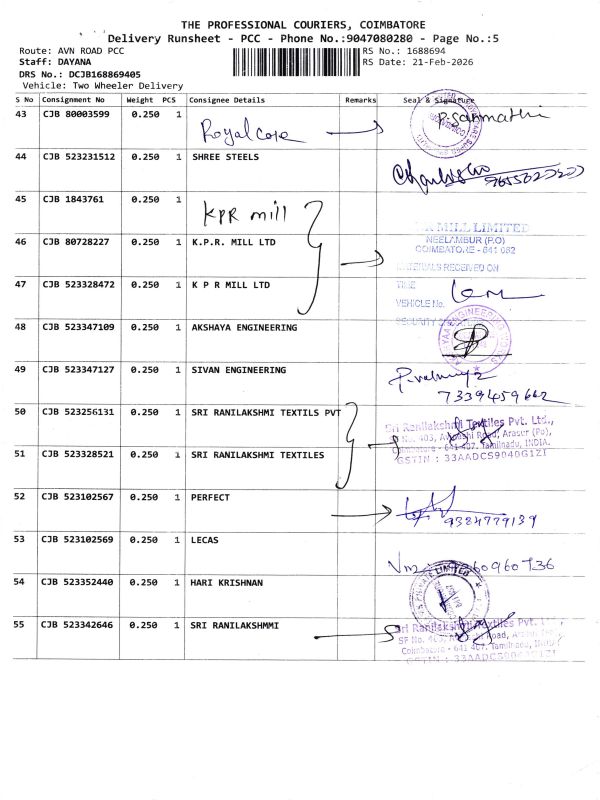 THE PROFESSIONAL COURIERS, COIMBATORE
Delivery Runsheet - PCC - Phone No.:9047080280 - Page No.:5
Route: AVN ROAD PCC RS No.: 1688694
Staff: DAYANA RS Date: 21-Feb-2026
DRS No.: DCJB168869405
Vehicle: Two Wheeler Delivery
S No Consignment No Weight PCS Consignee Details Remarks Seal & Signature
43 CJB 80003599 0.250 1 Royalcare P. Sanmathi
44 CJB 523231512 0.250 1 SHREE STEELS
45 CJB 1843761 0.250 1 KPR mill
MILL LIMITED
46 CJB 80728227 0.250 1 K.P.R. MILL LTD NEELAMBUR (P.O)
COIMBATORE - 641 062
MATERIALS RECEIVED ON
47 CJB 523328472 0.250 1 K P R MILL LTD TIME
VEHICLE No.
SECURITY
48 CJB 523347109 0.250 1 AKSHAYA ENGINEERING
49 CJB 523347127 0.250 1 SIVAN ENGINEERING
7339459662
50 CJB 523256131 0.250 1 SRI RANILAKSHMI TEXTILS PVT Sri Ranilakshmi Textiles Pvt. Ltd.,
SF No. 403, Road, Arasur (Po),
Coimbatore - 641 407. Tamilnadu, INDIA.
51 CJB 523328521 0.250 1 SRI RANILAKSHMI TEXTILES GSTIN : 33AADCS9040G1ZI
52 CJB 523102567 0.250 1 PERFECT
9384779139
53 CJB 523102569 0.250 1 LECAS
54 CJB 523352440 0.250 1 HARI KRISHNAN
55 CJB 523342646 0.250 1 SRI RANILAKSHMMI Sri Ranilakshmi Textiles Pvt. Ltd.,
SF No. 403, Road,
Coimbatore - 641 407. Tamilnadu,
GSTIN : 33AADCS9040G1ZI